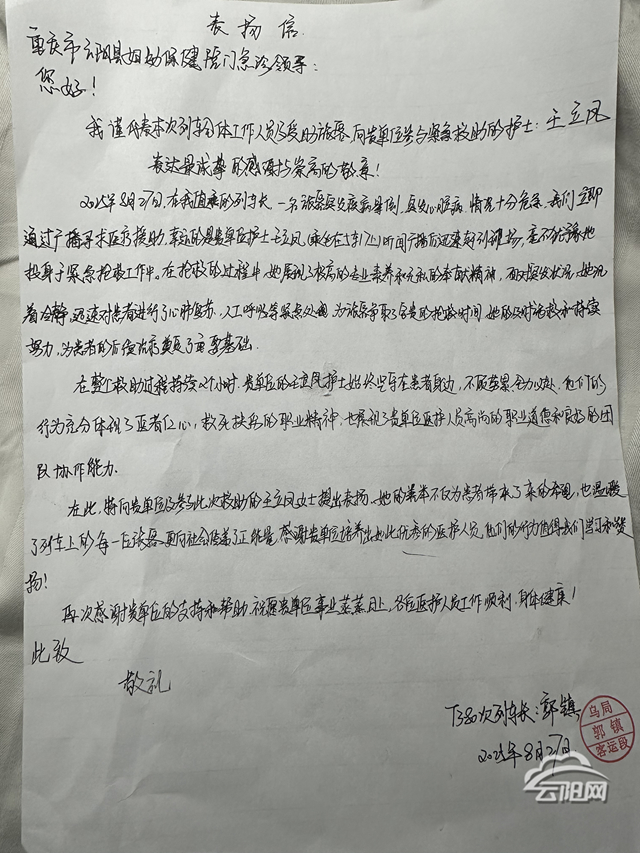 表扬信
重庆市云阳县妇幼保健院门急诊领导:
您好!
我谨代表本次列车全体工作人员及受助旅客,向贵单位参与紧急救助的护士:王立凤
表达最诚挚的感谢与崇高的敬意!
2025年8月27日,在我值乘的列车长,一名旅客突发疾病晕倒,突发心脏病,情况十分危急,我们立即
通过广播寻求医疗援助,幸运的是贵单位护士王立凤(乘坐在5车17上)听闻广播后迅速赶到现场,毫不犹豫地
投身于紧急抢救工作中。在抢救的过程中,她展现了极高的专业素养和无私的奉献精神,面对突发状况,她沉
着冷静,迅速对患者进行了心肺复苏,人工呼吸等紧急处理,为旅客争取了宝贵的抢救时间,她的及时施救和持续
努力,为患者的后续治疗奠定了重要基础.
在整个救助过程持续2小时,贵单位的王立凤护士始终坚守在患者身边,不顾劳累,全力以赴,他们的
行为充分体现了医者仁心,救死扶伤的职业精神,也展现了贵单位医护人员高尚的职业道德和良好的团
队协作能力.
在此,特向贵单位及参与此次救助的王立凤女士提出表扬,她的善举不仅为患者带来了生的希望,也温暖
了列车上的每一位旅客,更向社会传递了正能量,感谢贵单位培养出如此优秀的医护人员,他们的行为值得我们学习和发
扬!
再次感谢贵单位的支持和帮助,祝愿贵单位事业蒸蒸日上,各位医护人员工作顺利,身体健康!
此致
敬礼
T380次列车长:郭镇
乌局
郭镇
客运段
2025年8月27日
云阳网